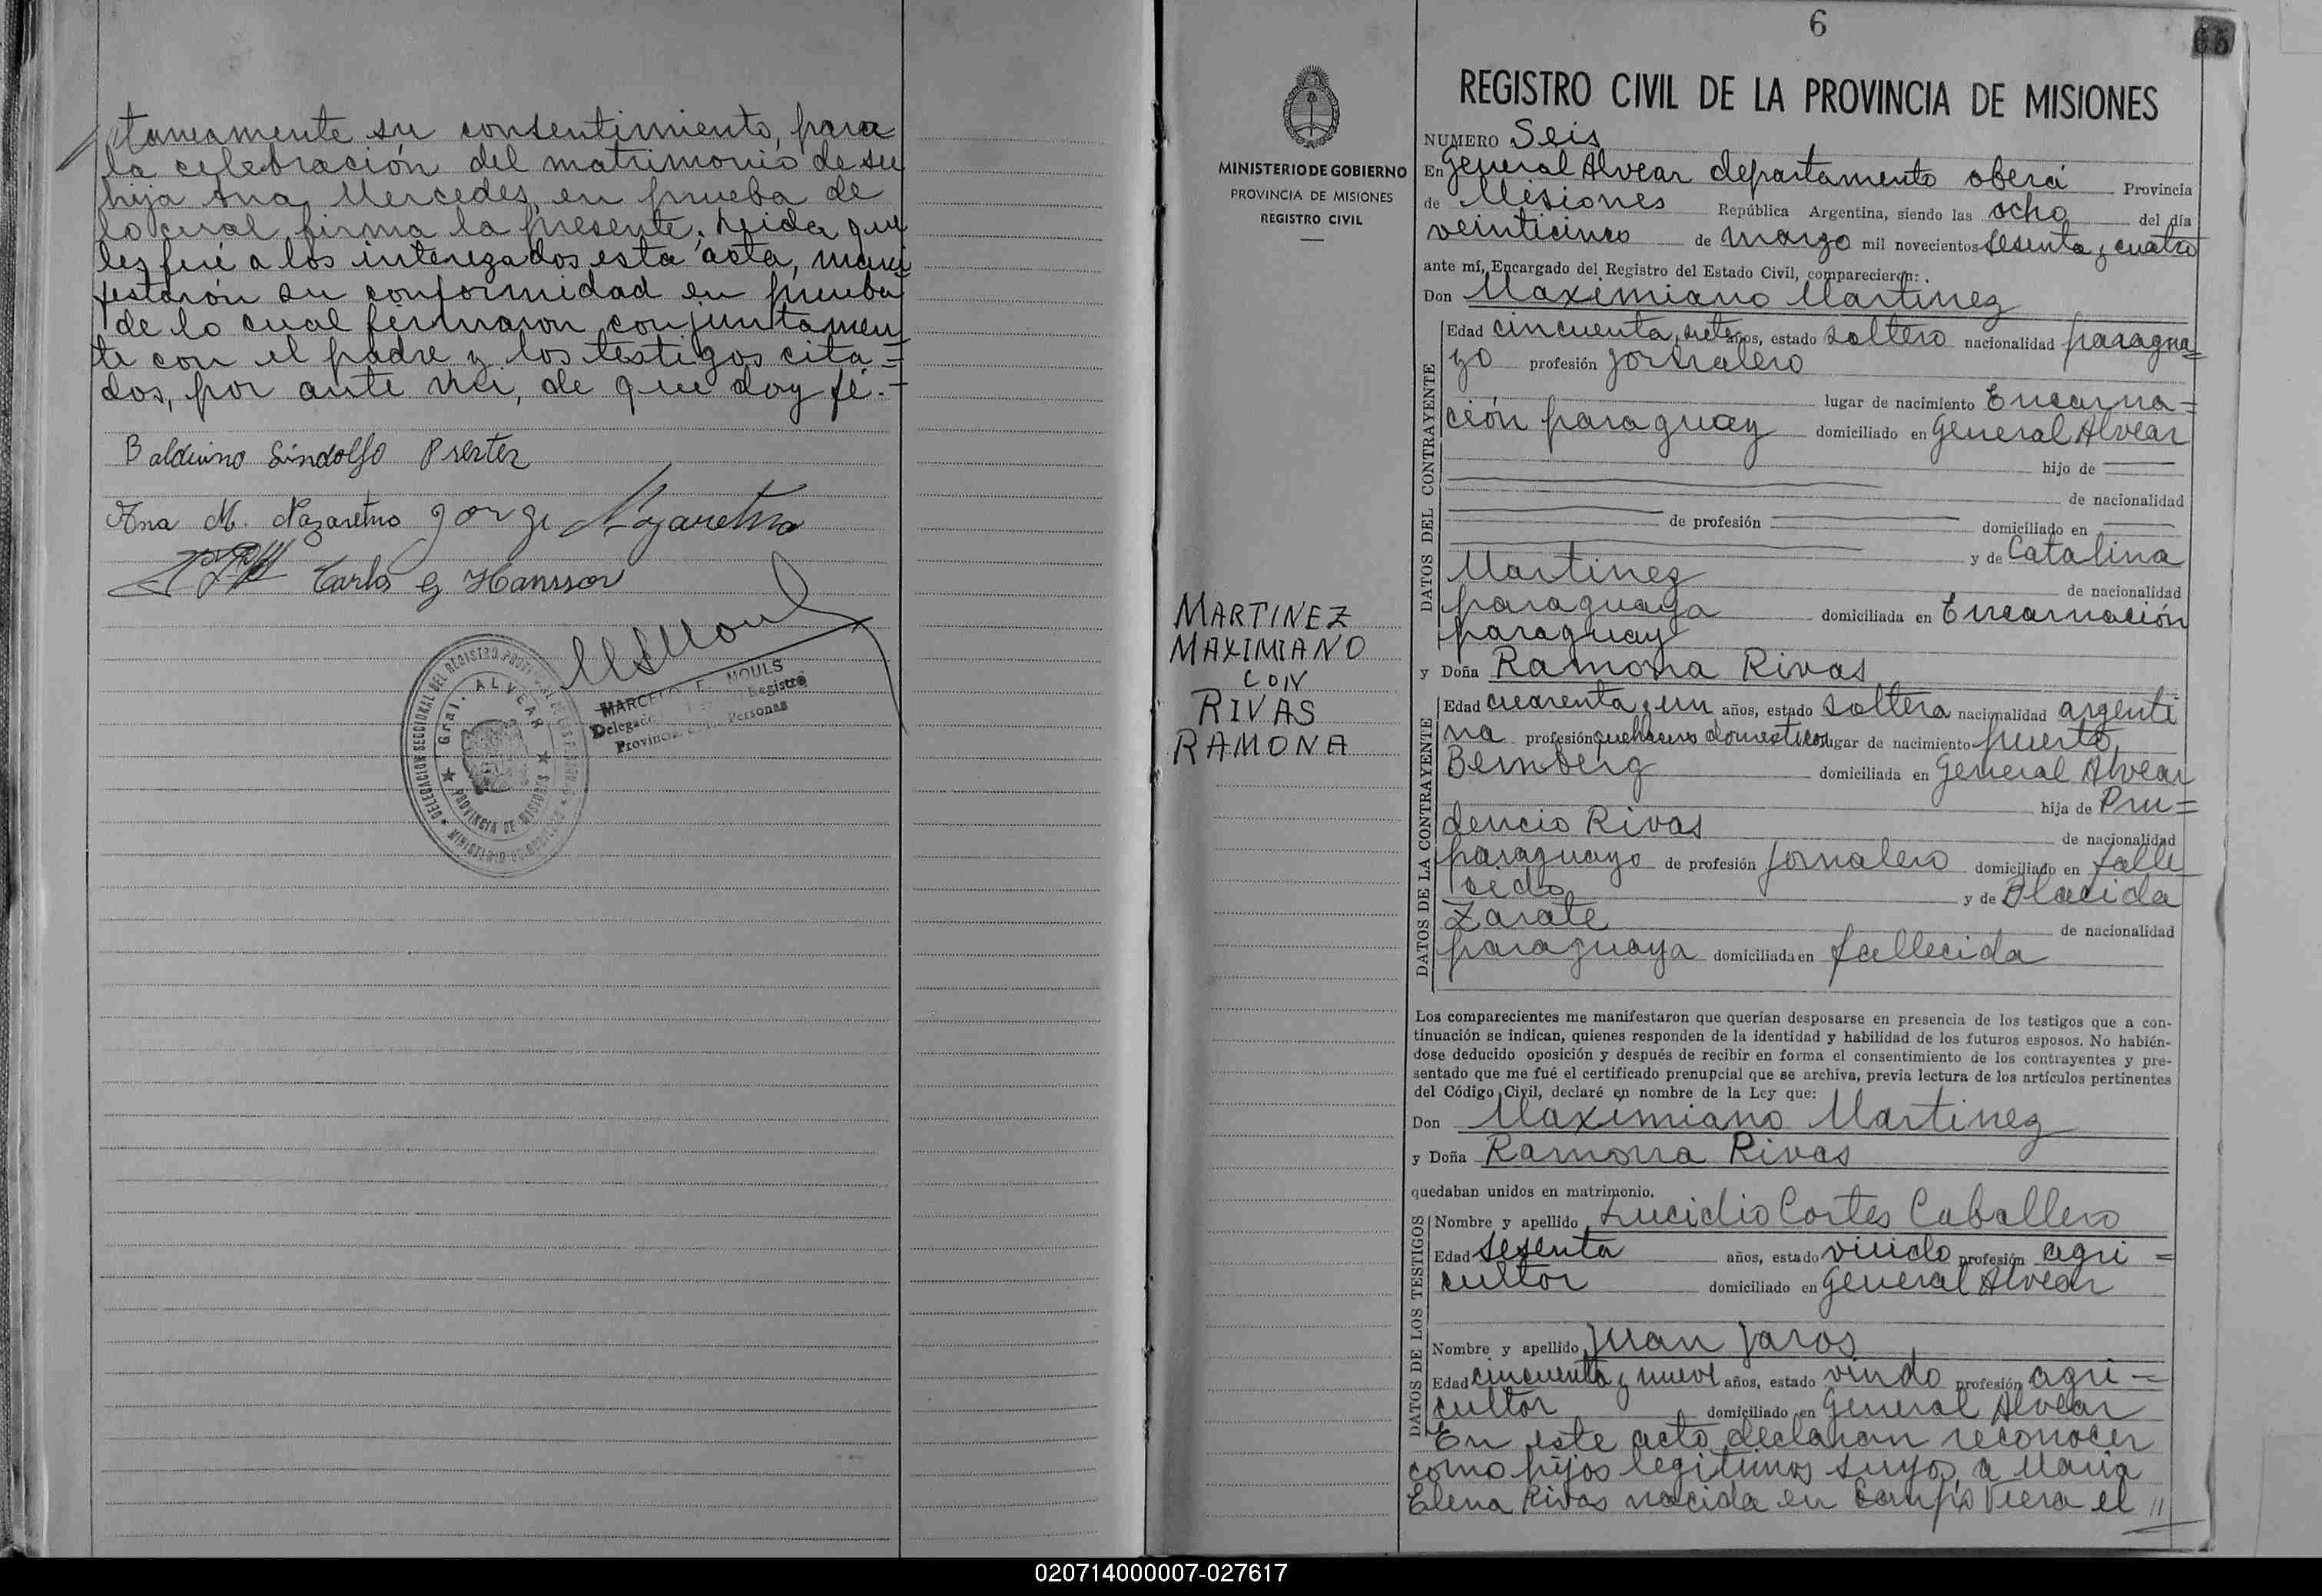 taneamente su consentimiento, para
la celebración del matrimonio de su
hija Ana Mercedes, en prueba de
lo cual firma la presente; leida que
les fué a los interezados esta acta, mani
festarón su conformidad en prueba
de lo cual firmaron conjuntamen
te con el padre y los testigos cita=
dos, por ante mi, de que doy fé.-
Balduino Lindolfo Prester
Ana M. Nazareno Jorge Nazareno
Carlos G Hansson
MARCELO E. MOULS
Delegado Registro
Provincial de las Personas
DELEGACION SECCIONAL DEL REGISTRO PROVINCIAL
Gral. ALVEAR
PROVINCIA DE MISIONES
MINISTERIO DE GOBIERNO
6
MINISTERIO DE GOBIERNO
PROVINCIA DE MISIONES
REGISTRO CIVIL
MARTINEZ
MAXIMIANO
CON
RIVAS
RAMONA
REGISTRO CIVIL DE LA PROVINCIA DE MISIONES
NUMERO Seis
En General Alvear departamento oberá Provincia
de Misiones República Argentina, siendo las ocho del día
veinticinco de marzo mil novecientos sesenta y cuatro
ante mí, Encargado del Registro del Estado Civil, comparecieron:
Don Maximiano Martinez
DATOS DEL CONTRAYENTE
Edad cincuenta, siete años, estado soltero nacionalidad paragua=
yo profesión jornalero
lugar de nacimiento Encarna=
ción paraguay domiciliado en General Alvear
hijo de
de nacionalidad
de profesión domiciliado en
y de Catalina
Martinez
de nacionalidad
paraguaya domiciliada en Encarnación
paraguay
y Doña Ramona Rivas
DATOS DE LA CONTRAYENTE
Edad cuarenta y un años, estado soltera nacionalidad argenti
na profesión quehaceres domesticos lugar de nacimiento puerto
Bemberg domiciliada en General Alvear
hija de Pru=
dencio Rivas
de nacionalidad
paraguayo de profesión jornalero domiciliado en falle
sido y de Placida
Zarate
de nacionalidad
paraguaya domiciliada en fallecida
Los comparecientes me manifestaron que querían desposarse en presencia de los testigos que a con-
tinuación se indican, quienes responden de la identidad y habilidad de los futuros esposos. No habién-
dose deducido oposición y después de recibir en forma el consentimiento de los contrayentes y pre-
sentado que me fué el certificado prenupcial que se archiva, previa lectura de los artículos pertinentes
del Código Civil, declaré en nombre de la Ley que:
Don Maximiano Martinez
y Doña Ramona Rivas
quedaban unidos en matrimonio.
DATOS DE LOS TESTIGOS
Nombre y apellido Lucidio Cortes Caballero
Edad sesenta años, estado viudo profesión agri=
cultor domiciliado en General Alvear
Nombre y apellido Juan Jaros
Edad cincuenta y nueve años, estado viudo profesión agri=
cultor domiciliado en General Alvear
En este acto declaran reconocer
como hijos legitimos suyos, a Maria
Elena Rivas nacida en Campo Viera el //
020714000007-027617